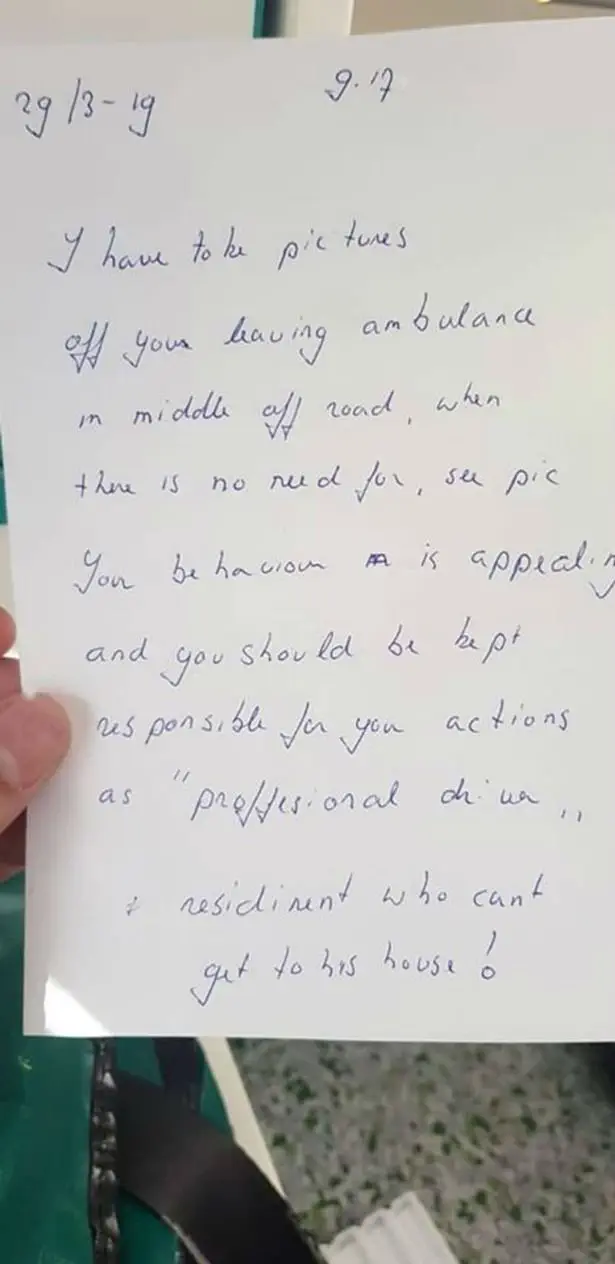 29/3-19 9.17
I have take pictures
off your leaving ambulance
in middle off road, when
there is no need for, see pic
Your behaviour is appealing
and you should be kept
responsible for you actions
as "proffesional driver"
residinent who cant
get to his house!